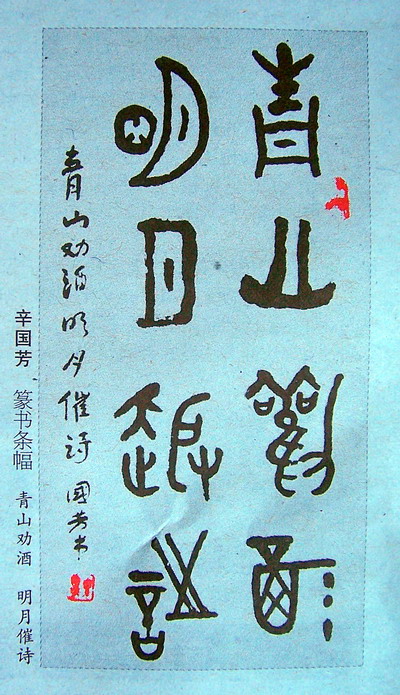 青山勸酒
明月催詩
青山劝酒明月催诗 國芳书
辛国芳 篆书条幅 青山劝酒 明月催诗